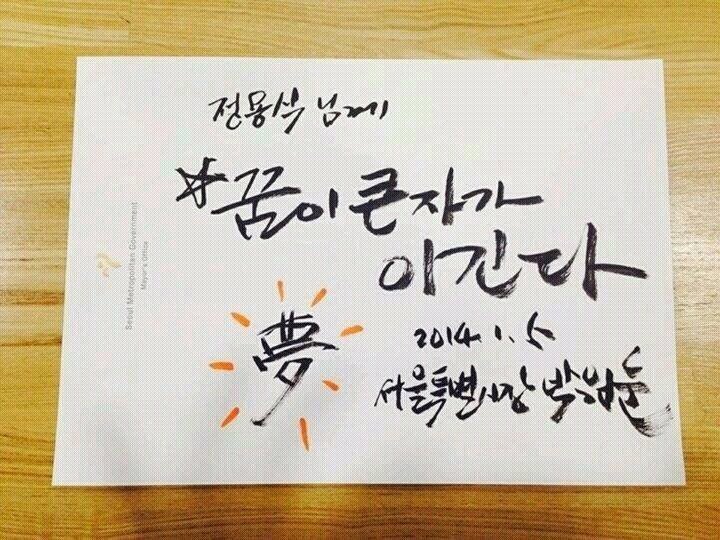 정용식 님께
*꿈이 큰 자가
이긴다
夢
2014. 1. 5
서울특별시장 박원순
Seoul Metropolitan Government
Mayor's Office